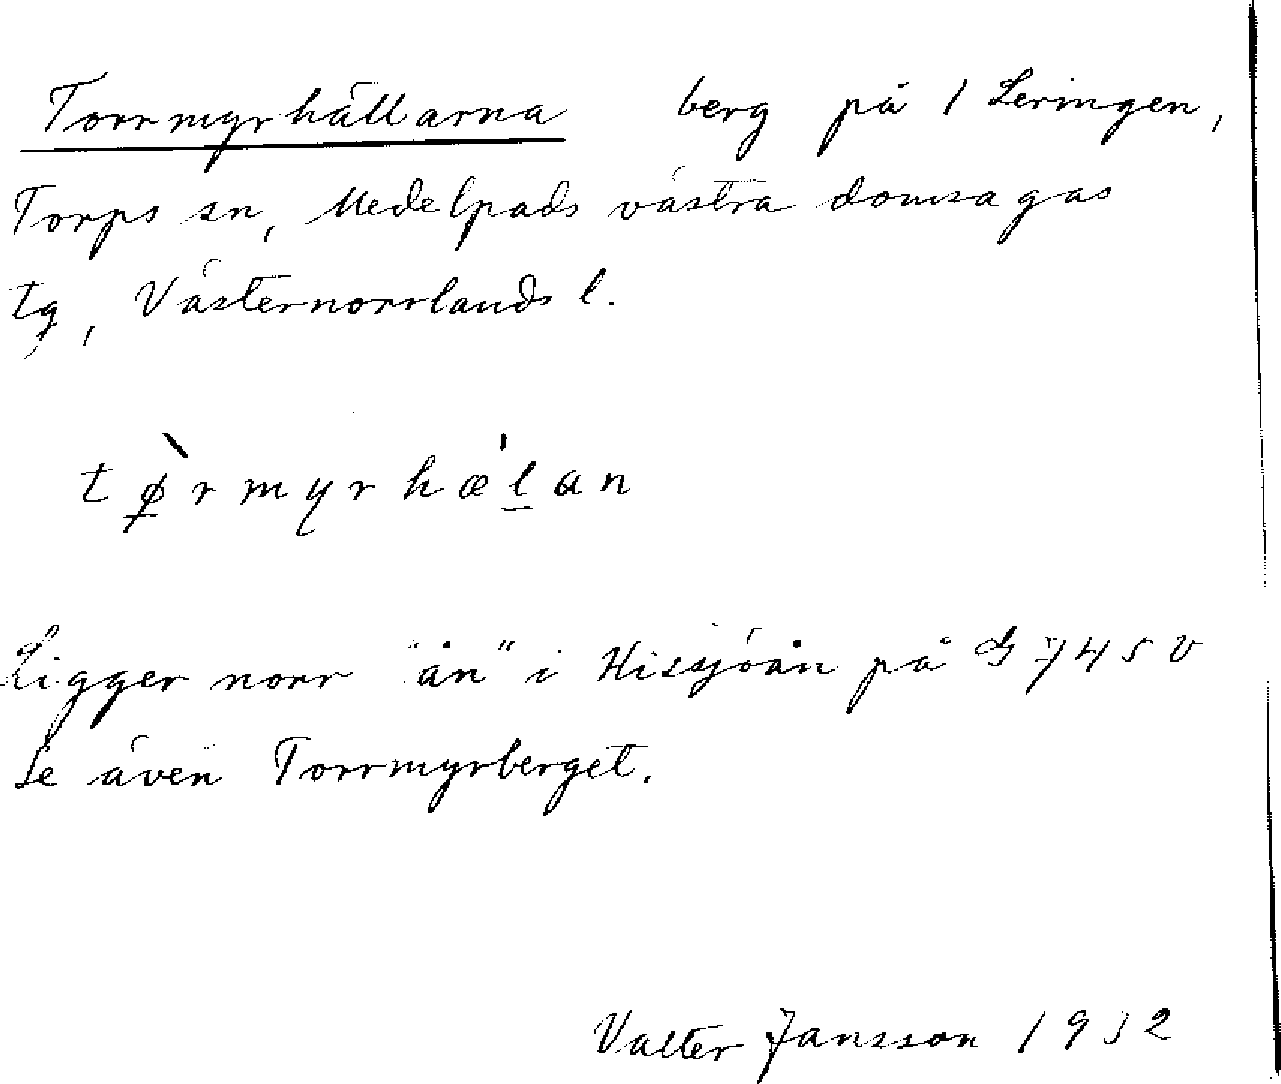 Torrmyrhällarna berg på 1 Leringen,
Torps sn, Medelpads västra domsagas
tg, Västernorrlands l.
tø̀rmyrhæ̀lan
Ligger norr "ån" i Hissjöån på G 745 V
Se även Torrmyrberget.
Valter Jansson 1932